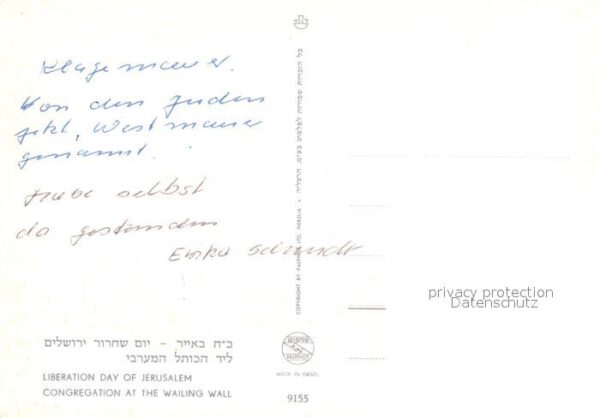 Klagemauer.
Von den Juden
jetzt, Westmauer
genannt.
Habe selbst
da gestanden
כ"ח באייר - יום שחרור ירושלים
ליד הכותל המערבי
LIBERATION DAY OF JERUSALEM
CONGREGATION AT THE WAILING WALL
כל הזכויות שמורות לפלפוט בע"מ. הרצליה
COPYRIGHT BY PALPHOT LTD. HERZLIA
פלפוט
PALPHOT
MADE IN ISRAEL
9155
privacy protection
Datenschutz